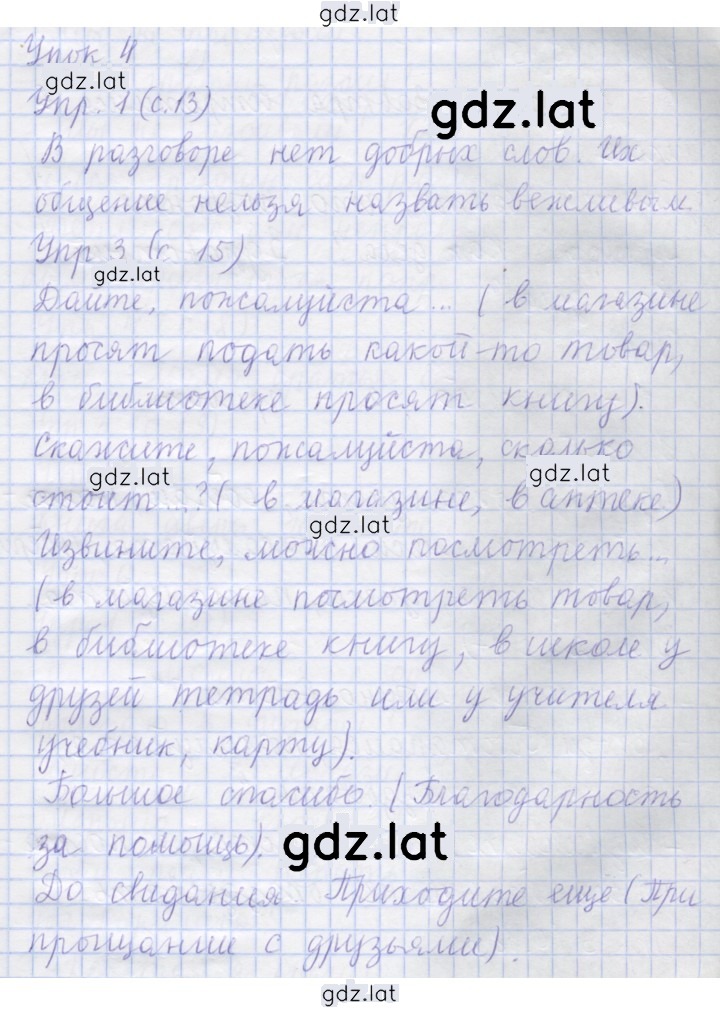 gdz.lat
Урок 4
gdz.lat
Упр. 1 (с.13)
gdz.lat
В разговоре нет добрых слов. Их
общение нельзя назвать вежливым.
Упр 3 (с. 15)
gdz.lat
Дайте, пожалуйста ... ( в магазине
просят подать какой-то товар,
в библиотеке просят книгу).
Скажите, пожалуйста, сколько
gdz.lat
gdz.lat
стоит ...? ( в магазине, в аптеке)
gdz.lat
Извините, можно посмотреть...
(в магазине посмотреть товар,
в библиотеке книгу, в школе у
друзей тетрадь или у учителя
учебник, карту).
Большое спасибо. (Благодарность
за помощь).
gdz.lat
До свидания. Приходите еще (При
прощании с друзьями).
gdz.lat